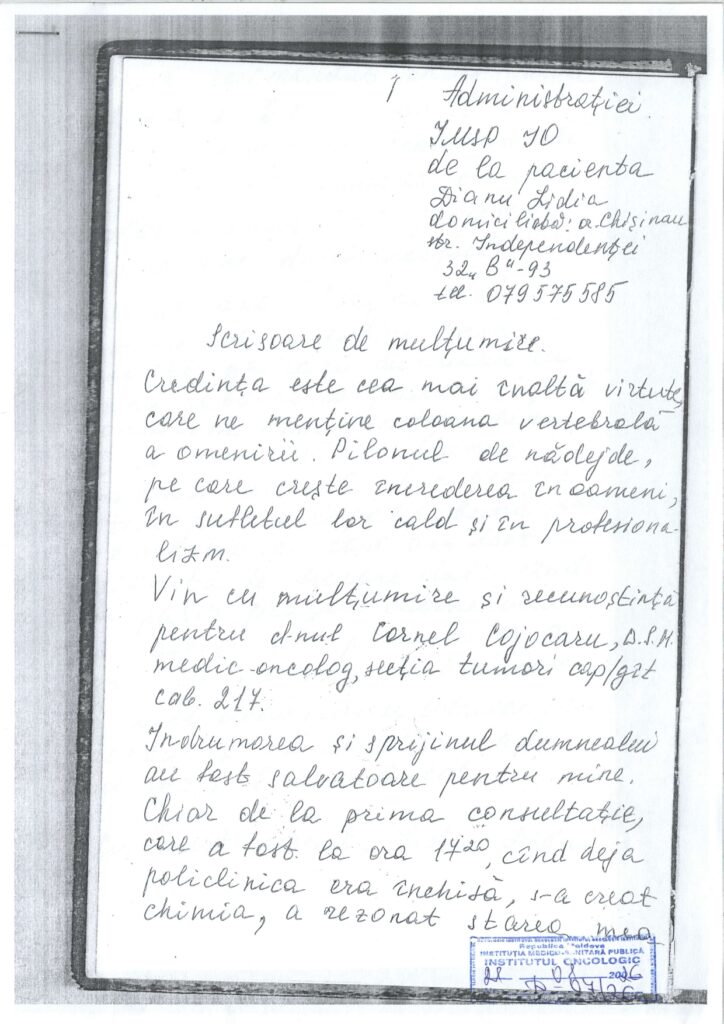 Administrației
IMSP IO
de la pacienta
Dianu Lidia
domiciliată: or. Chișinau
str. Independenței
32 „B"-93
tel. 079575585
Scrisoare de mulțumire.
Credința este cea mai înaltă virtute,
care ne menține coloana vertebrală
a omenirii. Pilonul de nădejde,
pe care crește încrederea în oameni,
în sufletul lor cald și în profesiona-
lizm.
Vin cu mulțumire și recunoștință
pentru d-nul Cornel Cojocaru, D.Ș.M.
medic-oncolog, secția tumori cap/gît
cab. 217.
Indrumarea și sprijinul dumnealui
au fost salvatoare pentru mine.
Chiar de la prima consultație,
care a fost la ora 17 20, cînd deja
policlinica era închisă, s-a creat
chimia, a rezonat starea mea
Republica Moldova
INSTITUȚIA MEDICO-SANITARĂ PUBLICĂ
INSTITUTUL ONCOLOGIC